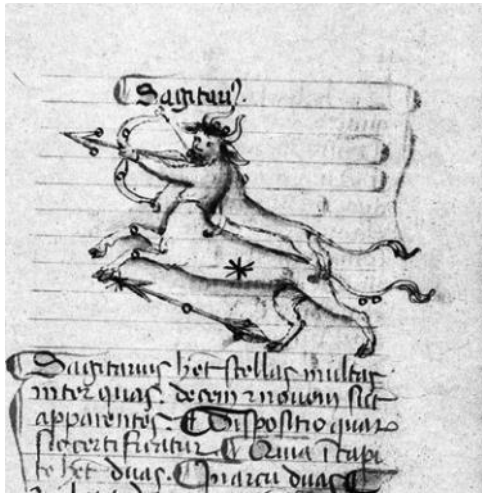 Sagitari9.
Sagitarius h̅et stellas multas
inter quas. decem ⁊ nouem sūt
apparentes. ¶ Dispositio quar
sic certificatur. ¶ Quia ī capi
te h̅et duas. ¶ In arcu duas ¶